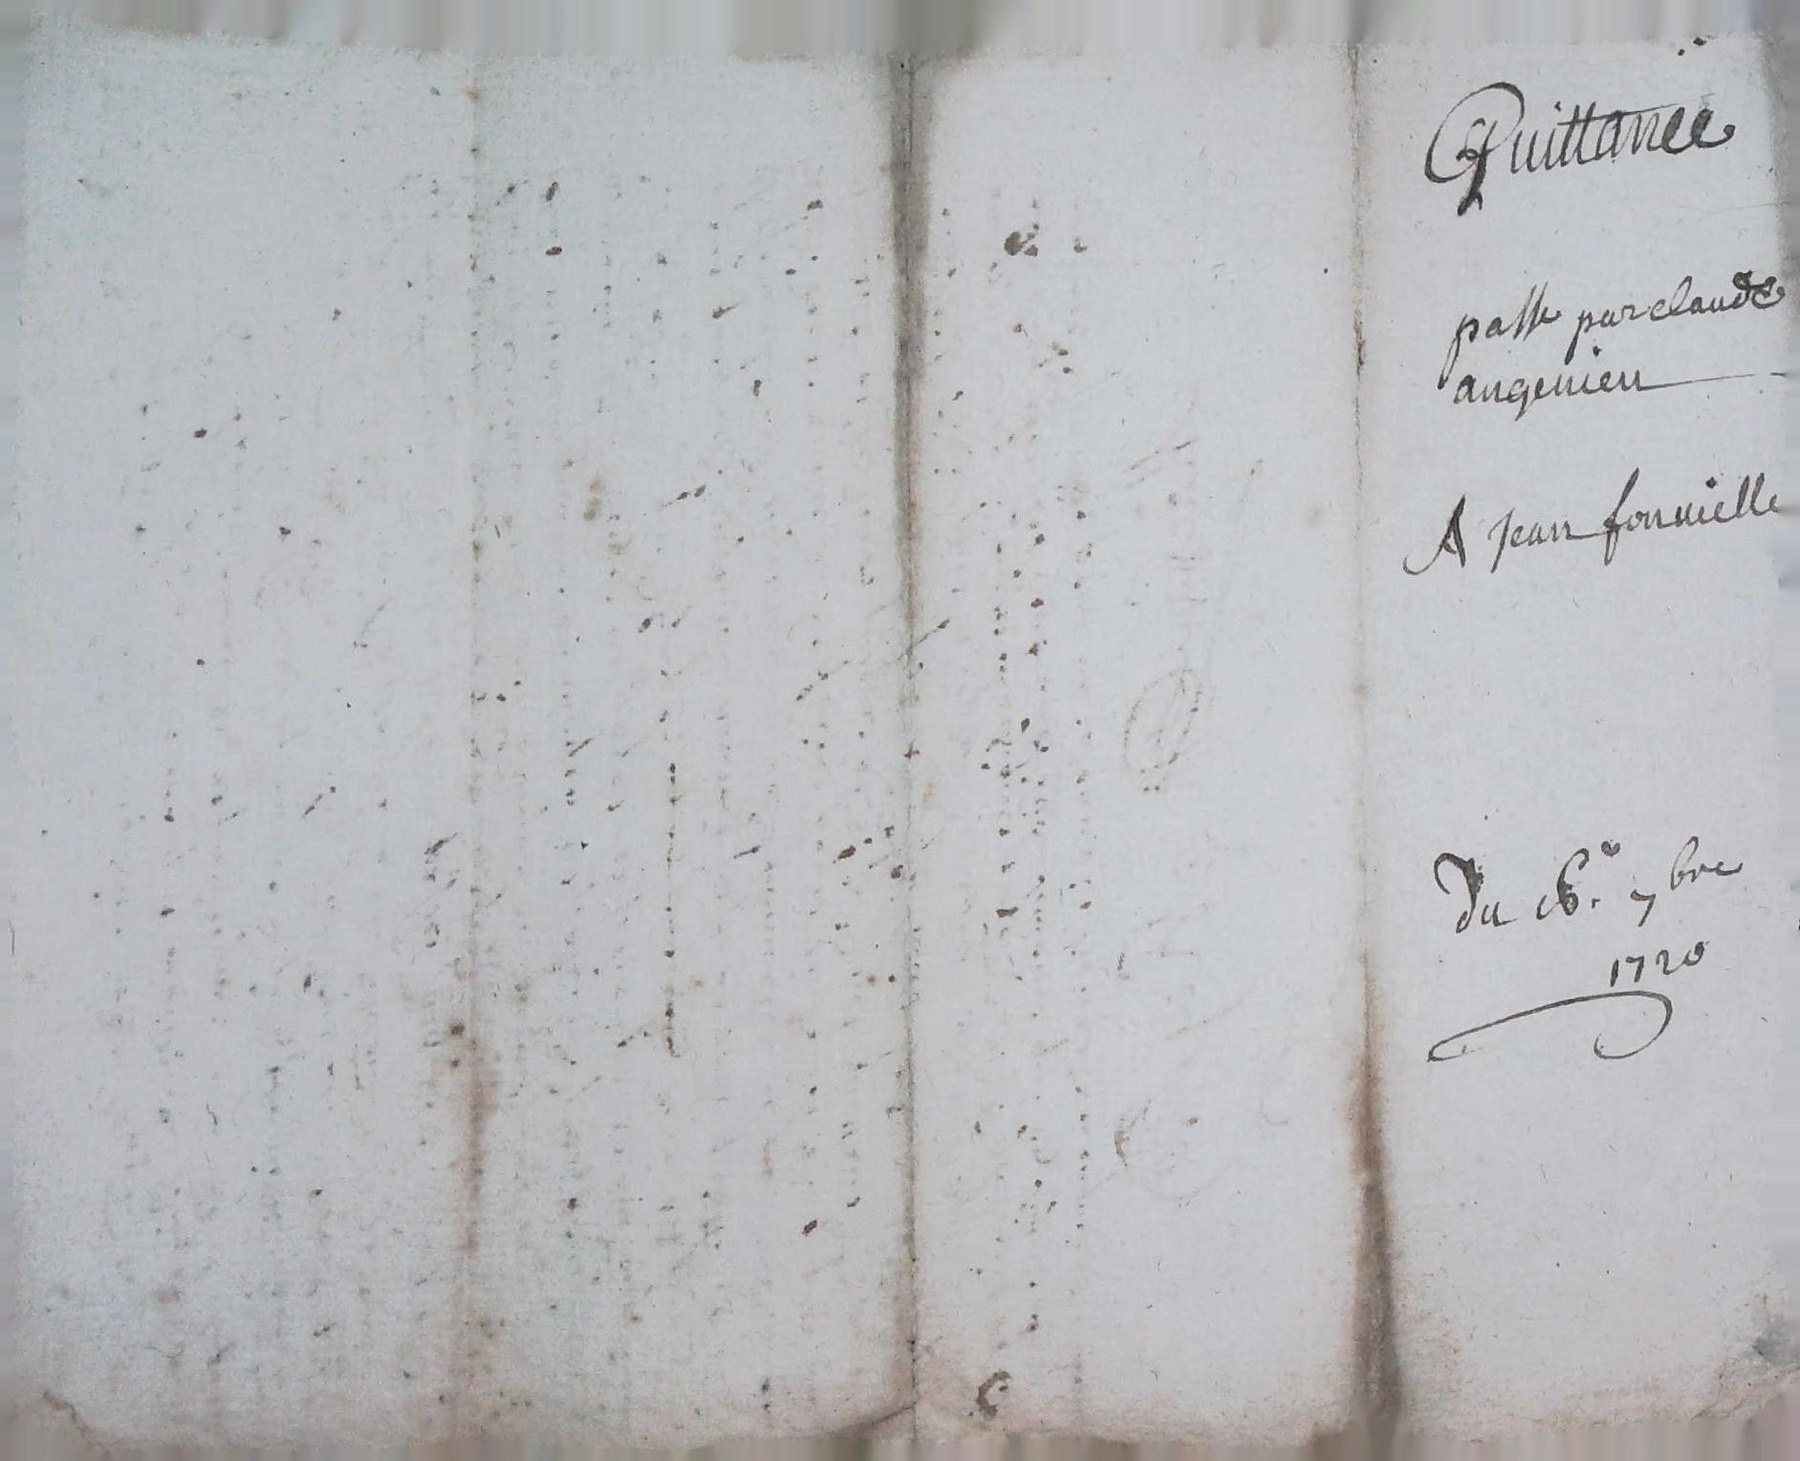 Quittance
passe par claude
angenieu
A Jean fonuielle
Du 16.e 7bre
1720